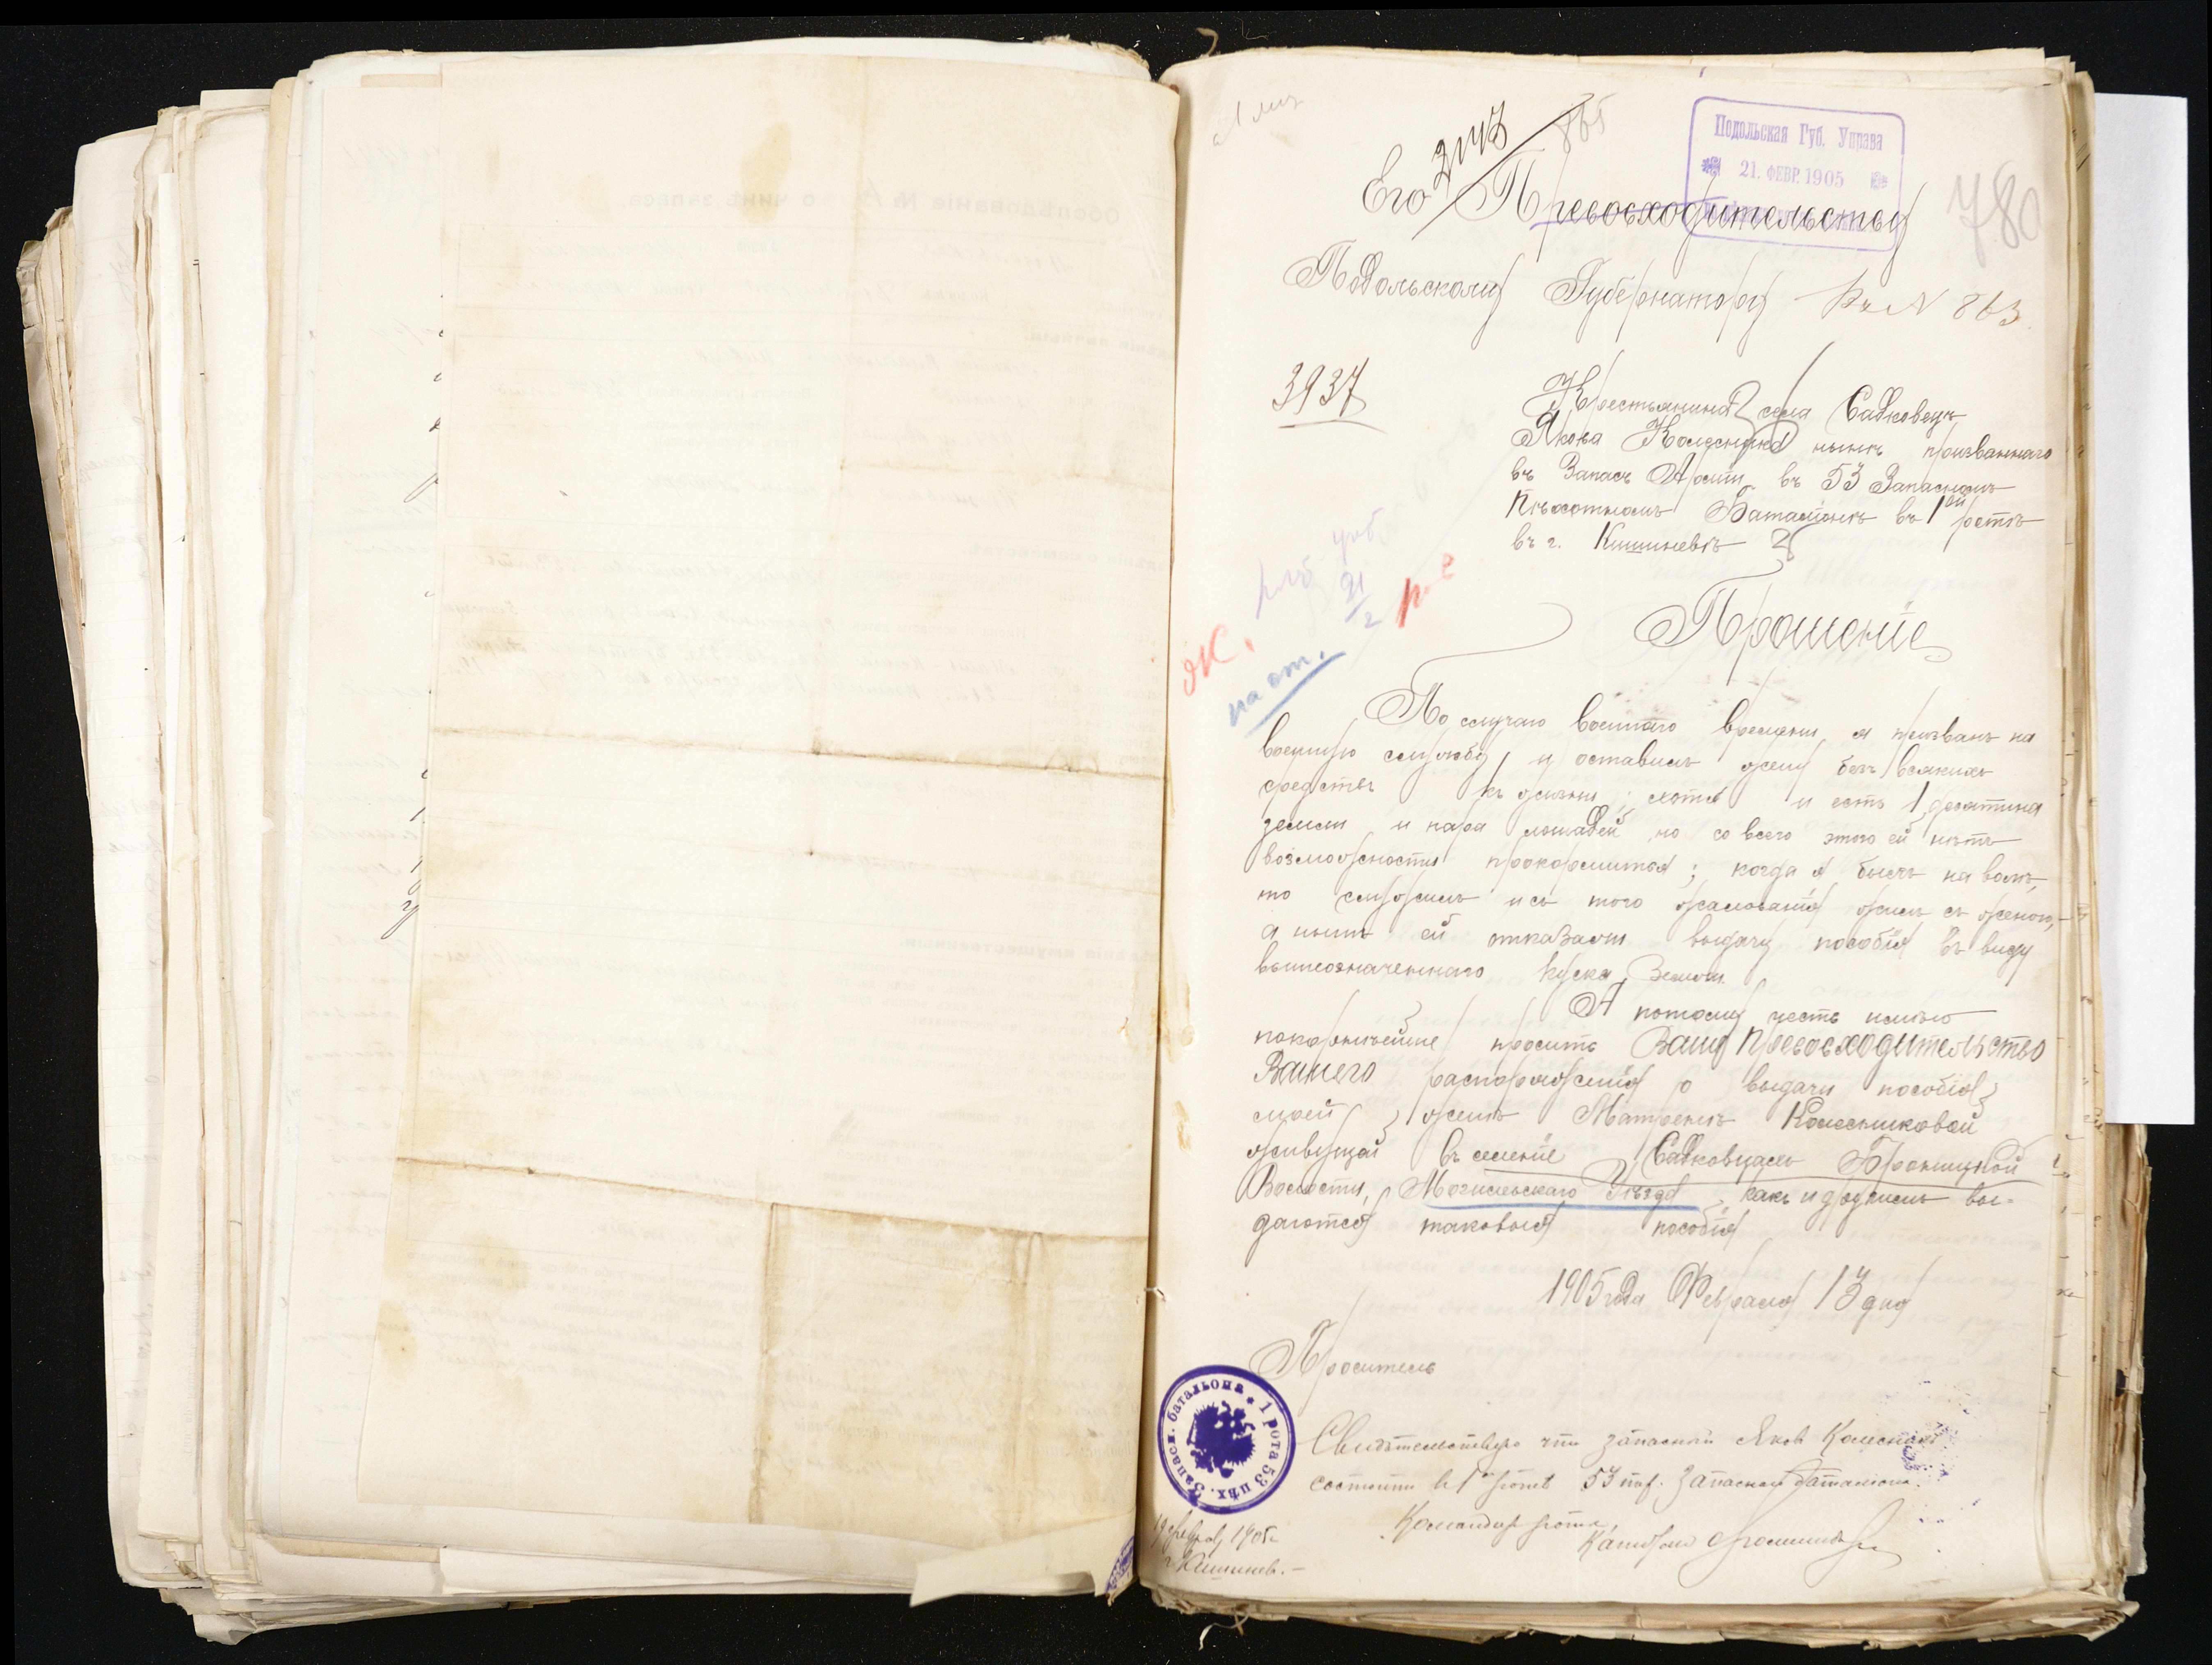 2173
865
Подольская Губ. Управа
21. ФЕВР. 1905
Его Превосходительству
780
Подольскому Губернатору
Къ N 863
3937
Крестьянина села Садковецъ
Якова Колесника нынѣ призваннаго
въ Запасъ Арміи въ 53 Запасномъ
Пѣхотномъ Баталіонѣ въ 1ой ротѣ
въ г. Кишиневѣ
21
2
на от.
Прошеніе
По случаю военнаго времени, я призванъ на
военную службу, и оставилъ жену безъ всякихъ
средствъ къ жизни; хотя и есть 1 десятина
земли и пара лошадей но со всего этого ей нѣтъ
возможности прокормится; когда я былъ на волѣ,
то служилъ и съ того жалованія жилъ съ женою,
а нынѣ ей отказали выдачу пособія въ виду
вышеозначеннаго куска земли.
А потому честь имѣю
покорнѣйше просить Ваше Превосходительство
Вашего распоряженія о выдачи пособія
моей женѣ Матренѣ Колесниковой
живущей въ селеніе Садковцахъ Броницкой
Волости, Могилевскаго Уѣзда, какъ и другимъ вы-
даются таковыя пособія
1905 года Февраля 13 дня
Проситель
1 рота 53 пѣх. Запасн. батальона
Свидѣтельствую что запасный Яков Колесник
состоитъ в 1й ротѣ 53 пѣх. Запаснаго баталіона.
Командир роты,
Капитан
19 февраля 1905 г.
г. Кишинев.-